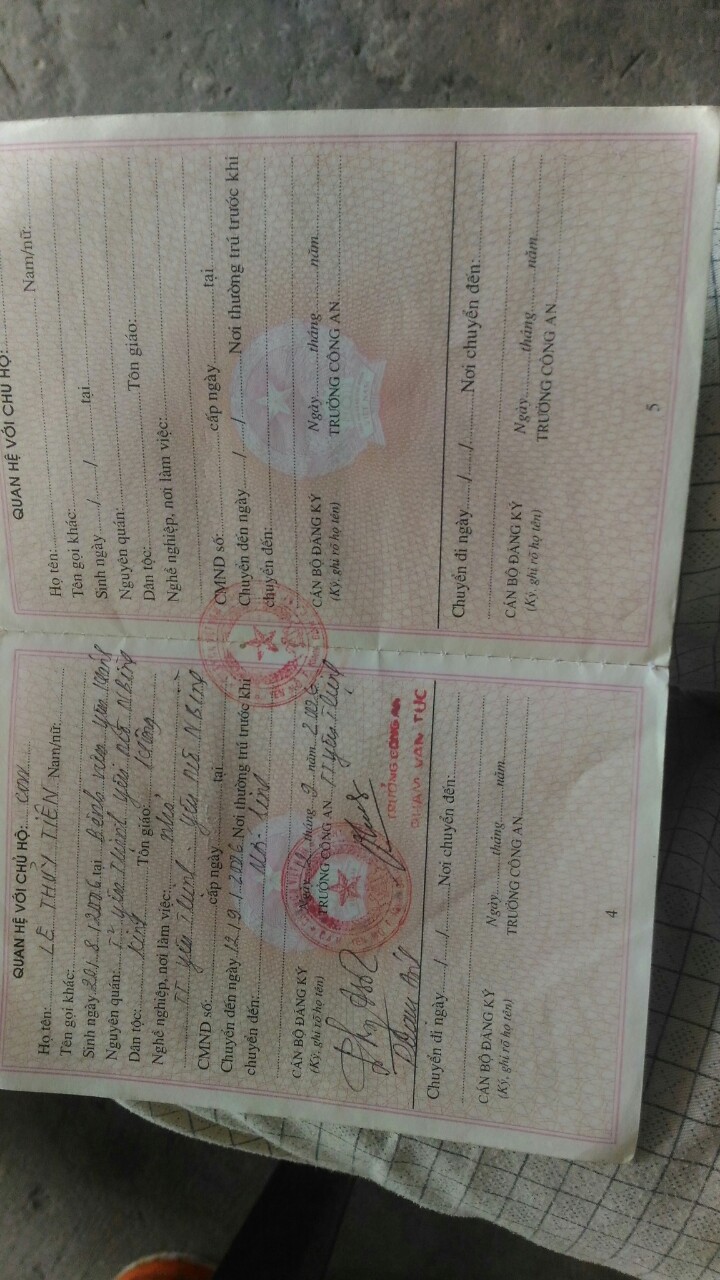 QUAN HỆ VỚI CHỦ HỘ: con
Họ tên: LÊ THỦY TIÊN Nam/nữ:
Tên gọi khác:
Sinh ngày 20/8/2006 tại Bệnh viện Yên Khánh
Nguyên quán: T² Yên Thịnh Yên Mô NBình
Dân tộc: Kinh Tôn giáo: Không
Nghề nghiệp, nơi làm việc: nhỏ
TT Yên Thịnh - Yên Mô NBình
CMND số: cấp ngày tại
Chuyển đến ngày 12/9/2006 Nơi thường trú trước khi
chuyển đến: Mới sinh
CÁN BỘ ĐĂNG KÝ
(Ký, ghi rõ họ tên)
Ngày 12 tháng 9 năm 2006
TRƯỞNG CÔNG AN TT Yên Thịnh
TRƯỞNG CÔNG AN
PHẠM VĂN TỤC
Chuyển đi ngày / / Nơi chuyển đến:
CÁN BỘ ĐĂNG KÝ
(Ký, ghi rõ họ tên)
Ngày tháng năm
TRƯỞNG CÔNG AN
4
QUAN HỆ VỚI CHỦ HỘ:
Họ tên: Nam/nữ:
Tên gọi khác:
Sinh ngày / / tại
Nguyên quán:
Dân tộc: Tôn giáo:
Nghề nghiệp, nơi làm việc:
CMND số: cấp ngày tại
Chuyển đến ngày / / Nơi thường trú trước khi
chuyển đến:
CÁN BỘ ĐĂNG KÝ
(Ký, ghi rõ họ tên)
Ngày tháng năm
TRƯỞNG CÔNG AN
VIỆT NAM
Chuyển đi ngày / / Nơi chuyển đến:
CÁN BỘ ĐĂNG KÝ
(Ký, ghi rõ họ tên)
Ngày tháng năm
TRƯỞNG CÔNG AN
5